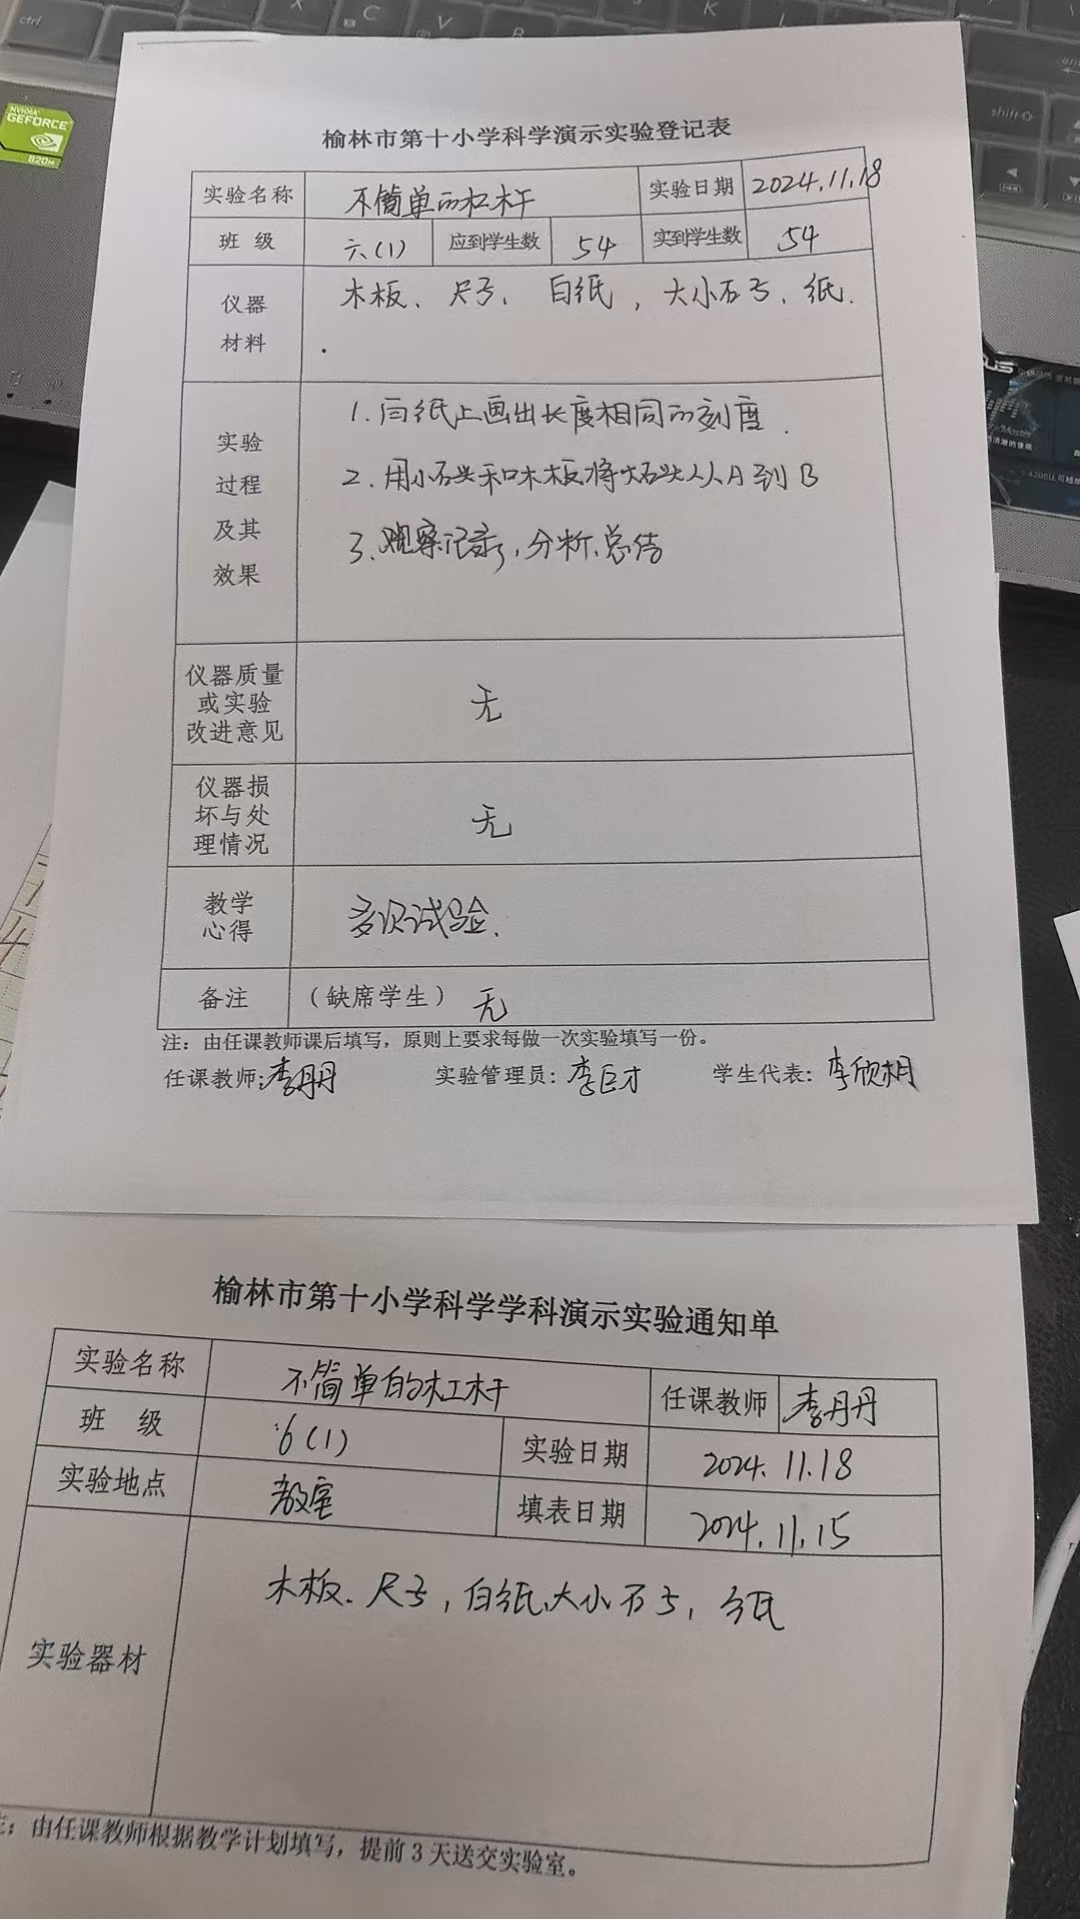 ctrl
X
C
V
B
K
L
shift
NVIDIA
GEFORCE
820M
榆林市第十小学科学演示实验登记表
实验名称 不简单的杠杆 实验日期 2024.11.18
班 级 六(1) 应到学生数 54 实到学生数 54
仪器材料 木板、尺子、白纸，大小石子、纸.
实验过程及其效果
1.白纸上画出长度相同的刻度.
2.用小石头和木板将大石头从A到B
3.观察记录,分析、总结
仪器质量或实验改进意见 无
仪器损坏与处理情况 无
教学心得 多次试验、
备注 （缺席学生） 无
注：由任课教师课后填写，原则上要求每做一次实验填写一份。
任课教师:李丹丹 实验管理员：李巨才 学生代表：李欣玥
榆林市第十小学科学学科演示实验通知单
实验名称 不简单的杠杆 任课教师 李丹丹
班 级 6(1) 实验日期 2024.11.18
实验地点 教室 填表日期 2024.11.15
实验器材 木板、尺子,白纸、大小石子,纸
注：由任课教师根据教学计划填写，提前3天送交实验室。